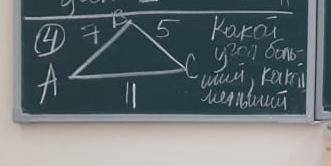 ④ 7 B 5 Какой
угол боль-
A C ший, какой
11 меньший